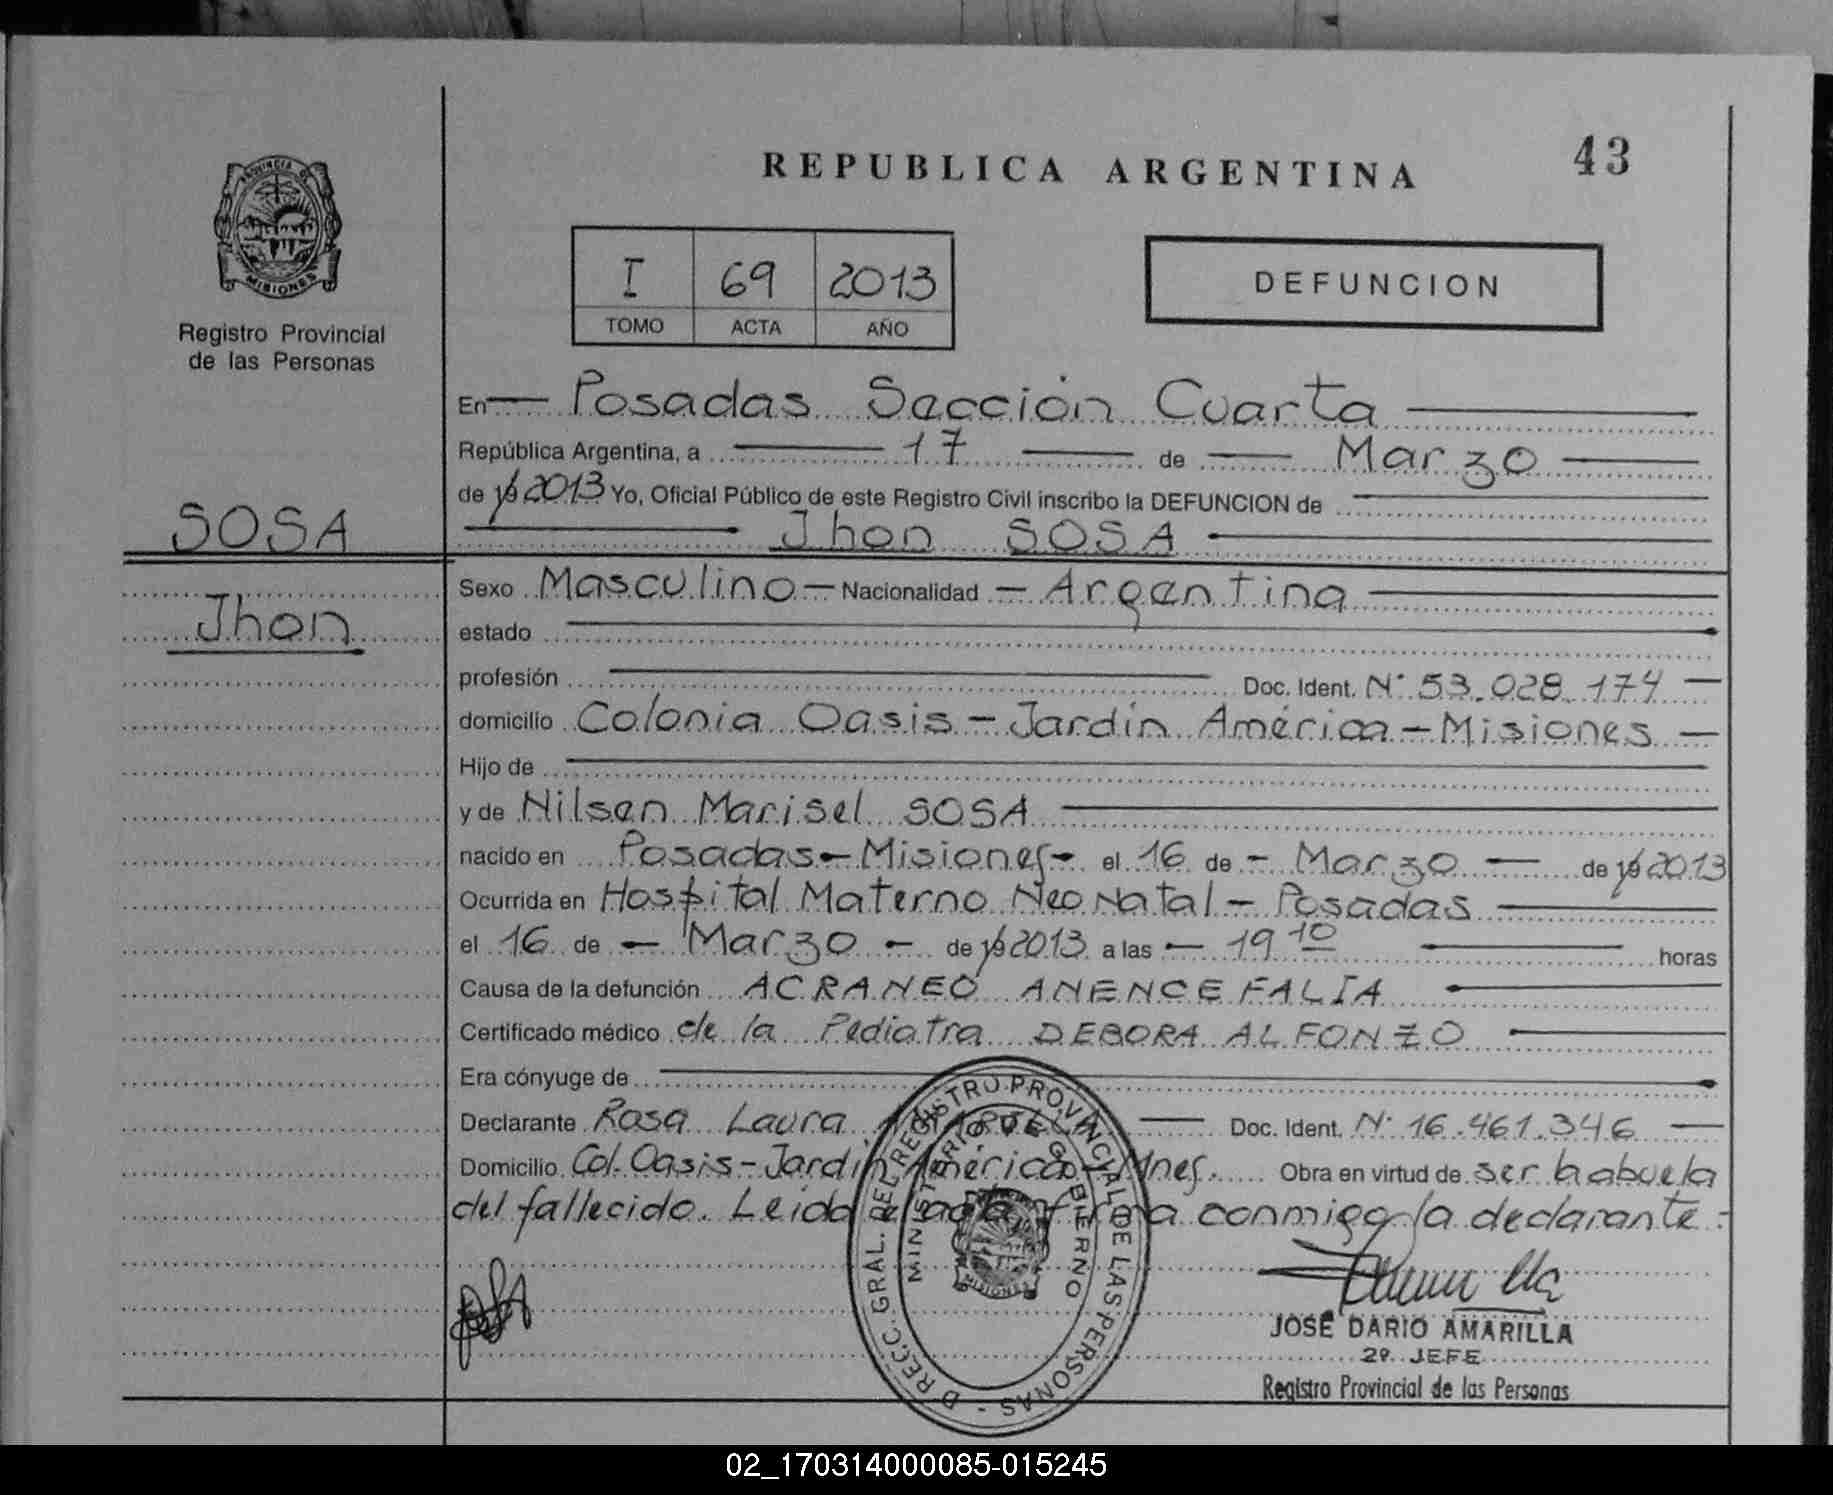 43
REPUBLICA ARGENTINA
PROVINCIA DE MISIONES
Registro Provincial
de las Personas
I 69 2013
TOMO ACTA AÑO
DEFUNCION
En Posadas Sección Cuarta
República Argentina, a 17 de Marzo
de 2013 Yo, Oficial Público de este Registro Civil inscribo la DEFUNCION de
SOSA
Jhon SOSA
Jhon
Sexo Masculino - Nacionalidad - Argentina
estado
profesión Doc. Ident. N° 53.028.174
domicilio Colonia Oasis - Jardín América - Misiones
Hijo de
y de Nilsen Marisel SOSA
nacido en Posadas - Misiones - el 16 de - Marzo - de 2013
Ocurrida en Hospital Materno NeoNatal - Posadas
el 16 de - Marzo - de 2013 a las - 19 10 horas
Causa de la defunción ACRANEO ANENCEFALIA
Certificado médico de la Pediatra DEBORA ALFONZO
Era cónyuge de
Declarante Rosa Laura Doc. Ident. N° 16.461.346
Domicilio Col. Oasis - Jardín América - Mnes. Obra en virtud de ser la abuela
del fallecido. Leida el acta firma conmigo la declarante.-
D REC. GRAL. DEL REGISTRO PROVINCIAL DE LAS PERSONAS -
MINISTERIO DE GOBIERNO
JOSE DARIO AMARILLA
2º JEFE
Registro Provincial de las Personas
02_170314000085-015245